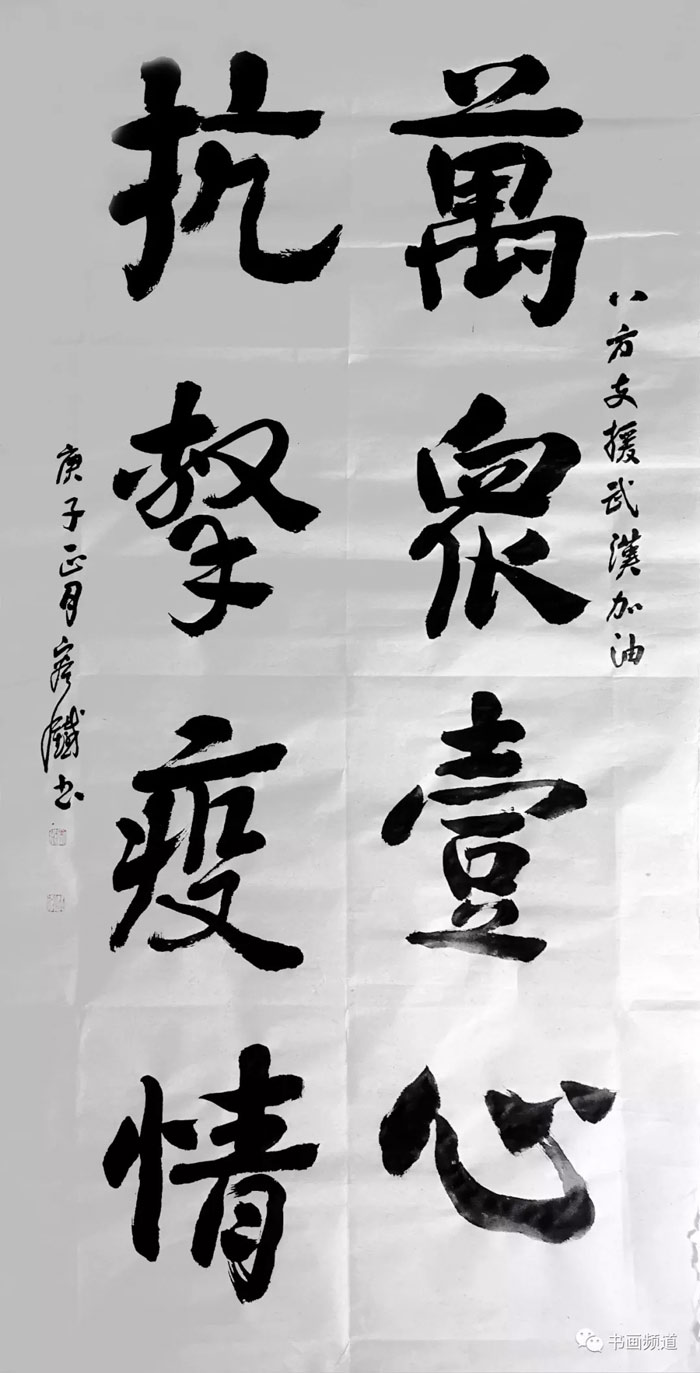 八方支援武漢加油
萬衆壹心
抗擊疫情
庚子正月 鐵书
书画频道